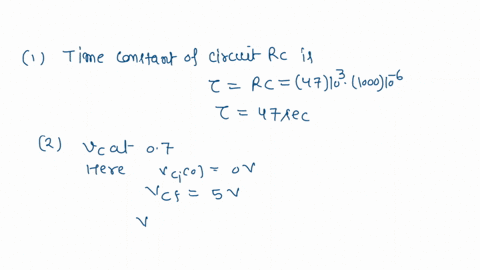 (1) Time constant of circuit Rc is
τ = RC = (47)10³·(1000)10⁻⁶
τ = 47sec
(2) Vc at 0.7
Here Vci(0) = 0V
Vcf = 5V
V